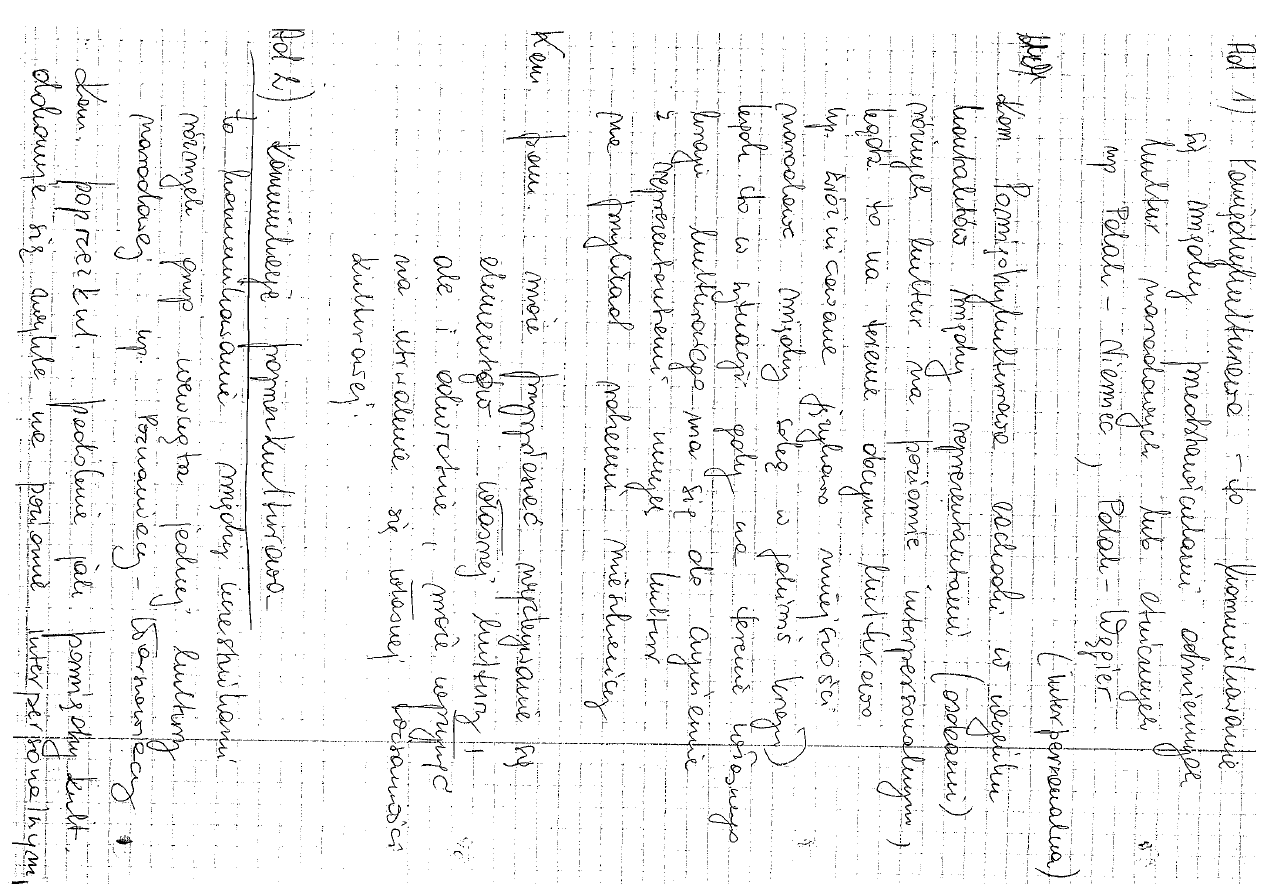 Ad 1) Komiędzykulturowa - to komunikowanie
się między przedstawicielami odmiennych
kultur narodowych lub etnicznych
np Polak - Niemiec, Polak - Węgier
(interpersonalna)
kom Pomiędzykulturowa zachodzi w wyniku
kontaktów między reprezentantami (osobami)
różnych kultur na poziomie interpersonalnym)
bądź to na terenie obcym kulturowo
np. zróżnicowane językowo mniejszości
narodowe między sobą w jakimś kraju)
bądź to w sytuacji gdy na terenie własnego
kraju kulturowego ma się do czynienia
z reprezentantami innych kultur
na przykład rdzenni mieszkańcy
Kom pom. może przyspieszać wyzbywanie się
elementów własnej kultury,
ale i odwrotnie, może wpłynąć
na utrwalenie się własnej tożsamości
kulturowej.
Ad 2) Komunikacja poprzezkulturowa
to komunikowanie między uczestnikami
różnych grup wewnątrz jednej kultury
narodowej np. Poznaniacy - Warszawiacy
Kom. poprzezkul. podobnie jak pomiędzykult.
dokonuje się zwykle na poziomie interpersonalnym,